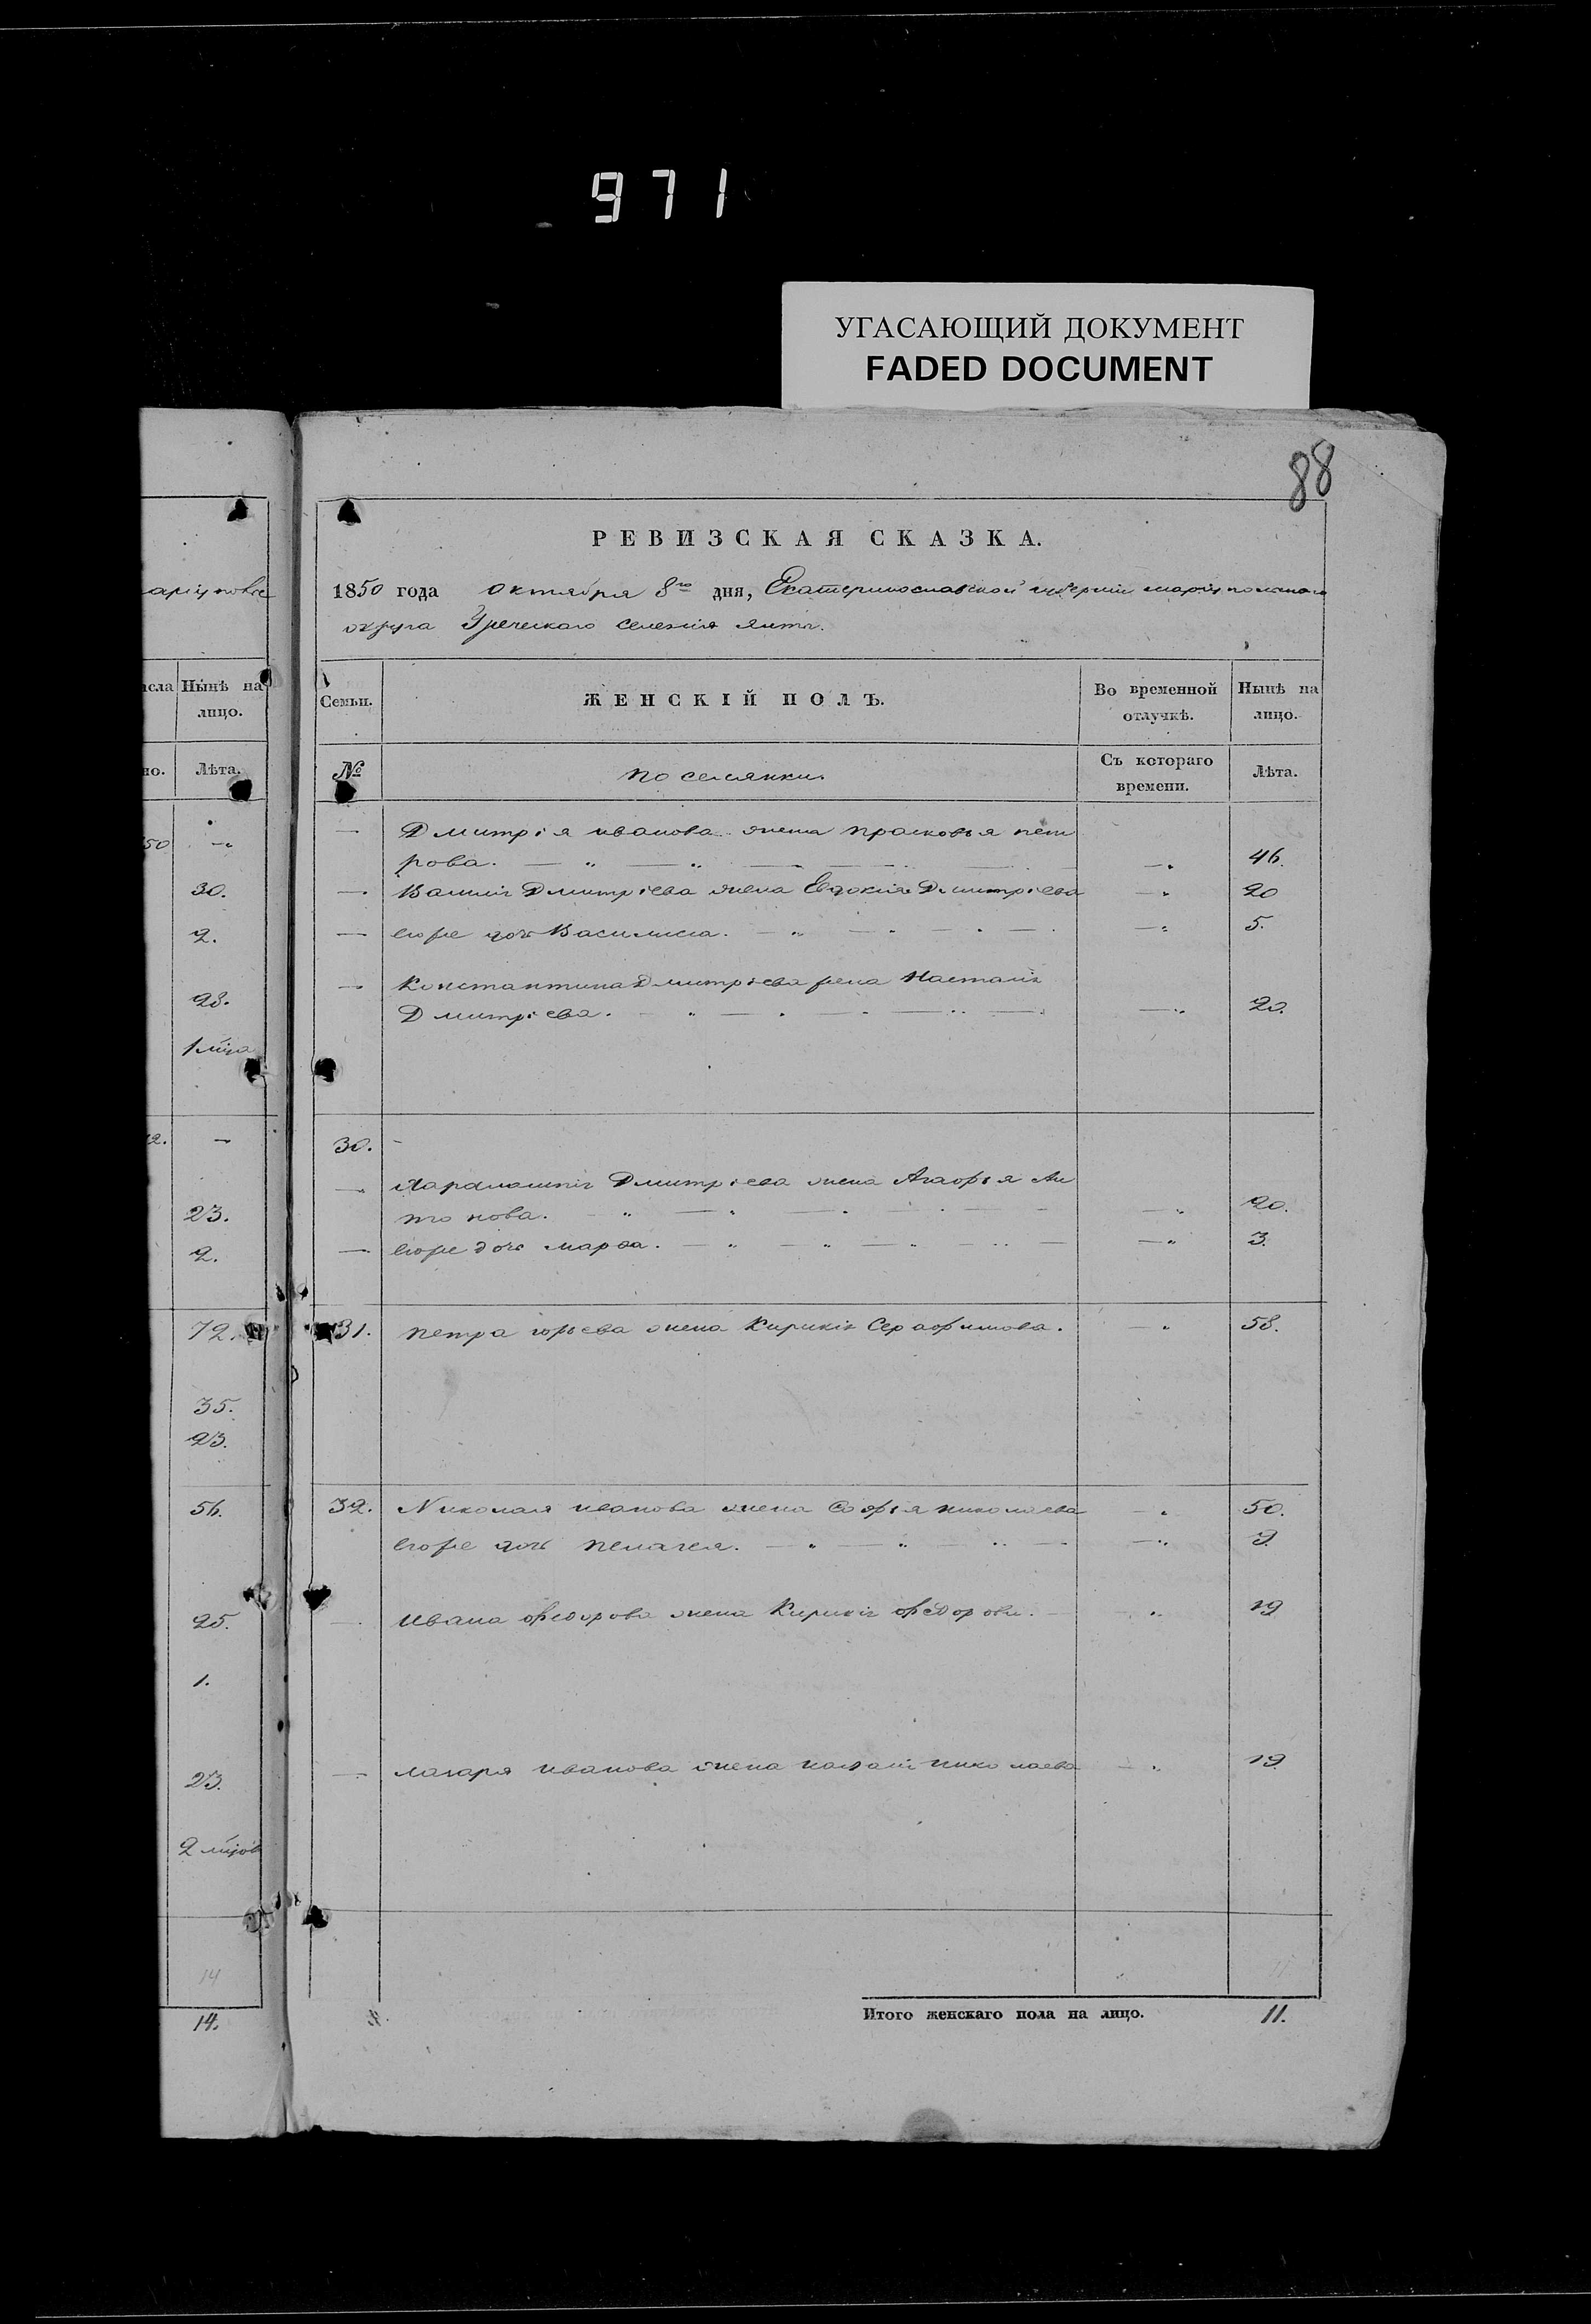 971
УГАСАЮЩИЙ ДОКУМЕНТ
FADED DOCUMENT
88
РЕВИЗСКАЯ СКАЗКА.
1850 года октября 8го дня, Екатеринославской губернии мариупольскаго
округа Греческаго селения Ялты.
Семьи.
ЖЕНСКІЙ ПОЛЪ.
Во временной отлучкѣ.
Нынѣ на лицо.
№
поселянки
Съ котораго времени.
Лѣта.
— Дмитрія иванова жена прасковья пет
рова. — " — " — 46.
— Василія Дмитріева жена Евдокия Дмитріева — " 20
— егоже дочь Василиса. — " — " 5.
— Константина Дмитріева жена Настасія
Дмитріева. — " — " 20.
30. -
— Харлампія Дмитріева жена Агафья Ан
тонова. — " — " 20.
— егоже дочь марфа. — " — " 3.
31. петра юрьева жена Кирикія Серафимова. — " 58.
32. Николая иванова жена Софья николаева — " 50.
егоже дочь пелагея. — " — " 9.
— Ивана федорова жена Кирикія федорова. — " 19
— лазаря иванова жена николаева — " 19.
Итого женскаго пола на лицо. 11.
исла
Нынѣ на
лицо.
но.
Лѣта.
50 —
30.
2.
28.
1 мца
—
23.
2.
72.
35.
23.
56.
25.
1.
23.
2 мцов
14
14.